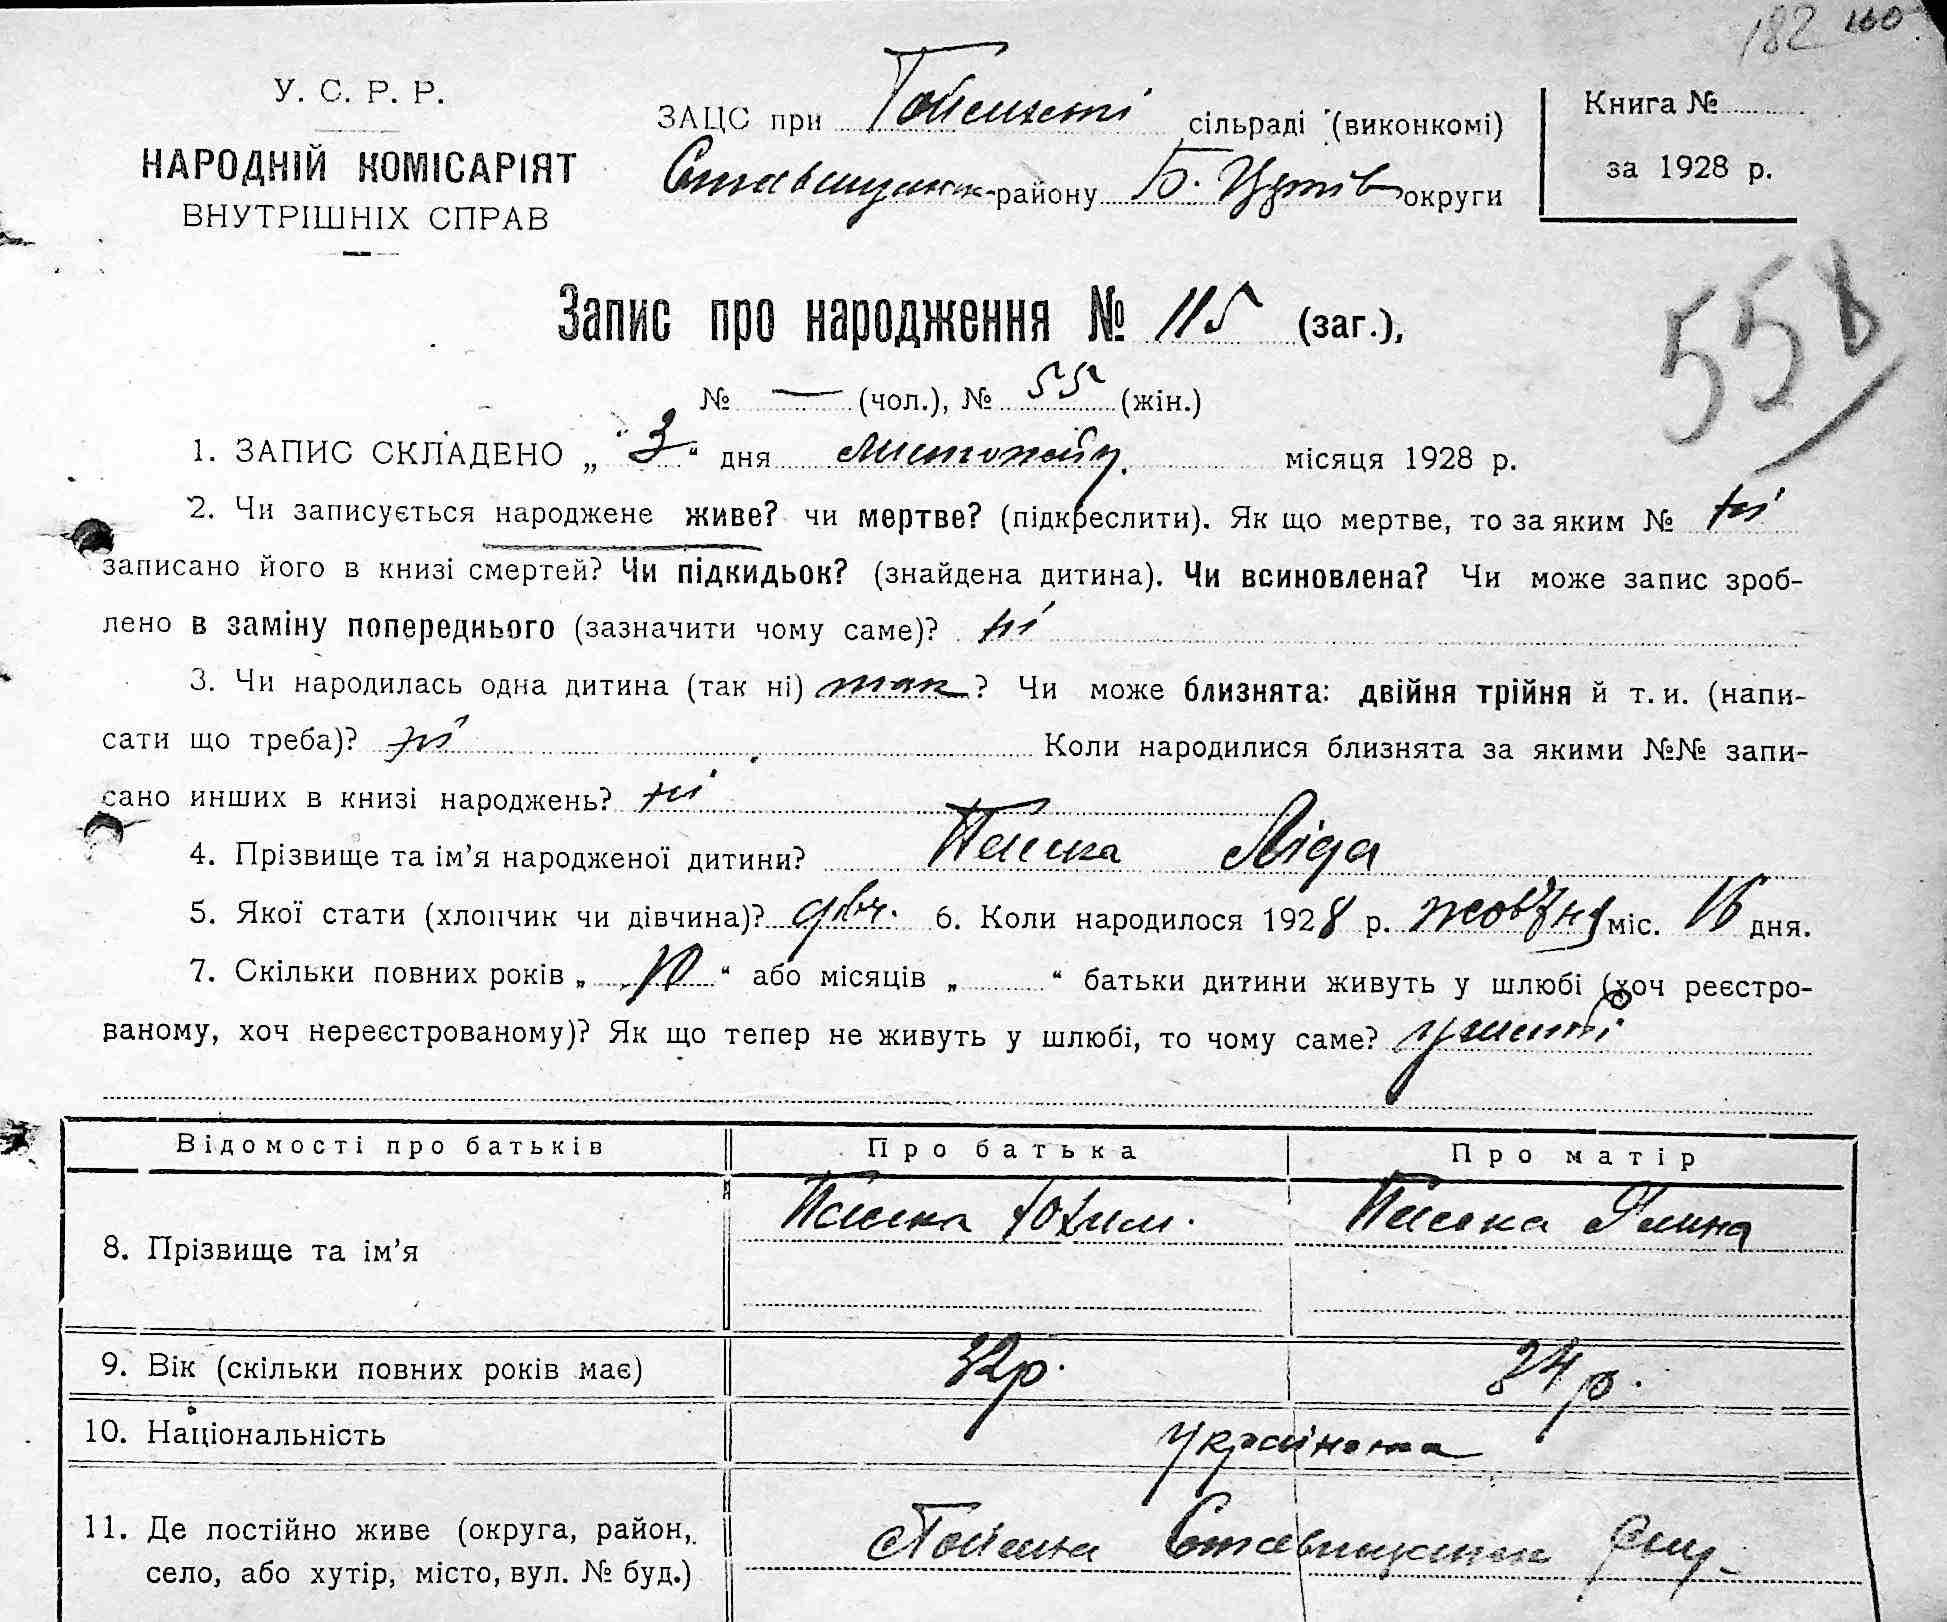 182 160
У. С. Р. Р.
НАРОДНІЙ КОМІСАРІЯТ
ВНУТРІШНІХ СПРАВ
ЗАЦС при сільраді (виконкомі)
району Б. Церків округи
Книга №
за 1928 р.
Запис про народження № 115 (заг.),
558
№ — (чол.), № 55 (жін.)
1. ЗАПИС СКЛАДЕНО „ 3 “ дня листопаду місяця 1928 р.
2. Чи записується народжене живе? чи мертве? (підкреслити). Як що мертве, то за яким № ні
записано його в книзі смертей? Чи підкидьок? (знайдена дитина). Чи всиновлена? Чи може запис зроб-
лено в заміну попереднього (зазначити чому саме)? ні
3. Чи народилась одна дитина (так ні) так ? Чи може близнята: двійня трійня й т. и. (напи-
сати що треба)? ні Коли народилися близнята за якими №№ запи-
сано инших в книзі народжень? ні
4. Прізвище та ім’я народженої дитини? Ліда
5. Якої стати (хлопчик чи дівчина)? дівч. 6. Коли народилося 1928 р. жовтня міс. 16 дня.
7. Скільки повних років „ 10 “ або місяців „ “ батьки дитини живуть у шлюбі (хоч реєстро-
ваному, хоч нереєстрованому)? Як що тепер не живуть у шлюбі, то чому саме?
Відомості про батьків Про батька Про матір
8. Прізвище та ім’я Юхим.
9. Вік (скільки повних років має) 32 р. 34 р.
10. Національність
11. Де постійно живе (округа, район,
село, або хутір, місто, вул. № буд.)